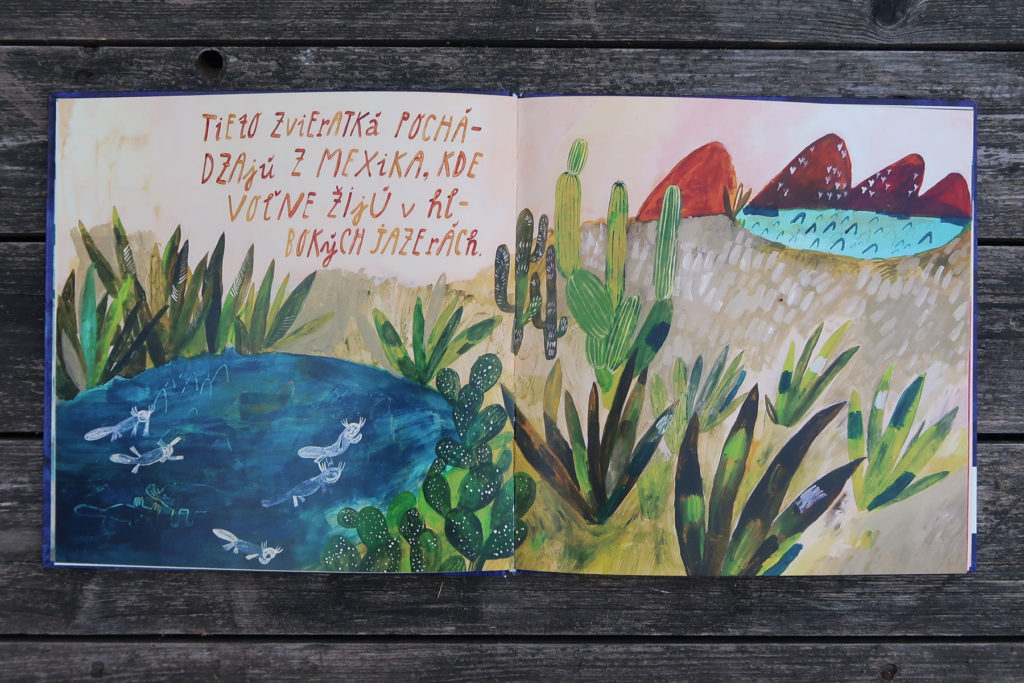 TiETO ZviERATKá POCHÁ-
DZAjú Z MEXiKA, KDE
VOľNE ŽIjÚ v hĺ-
BOKýCH JAZERÁCh.